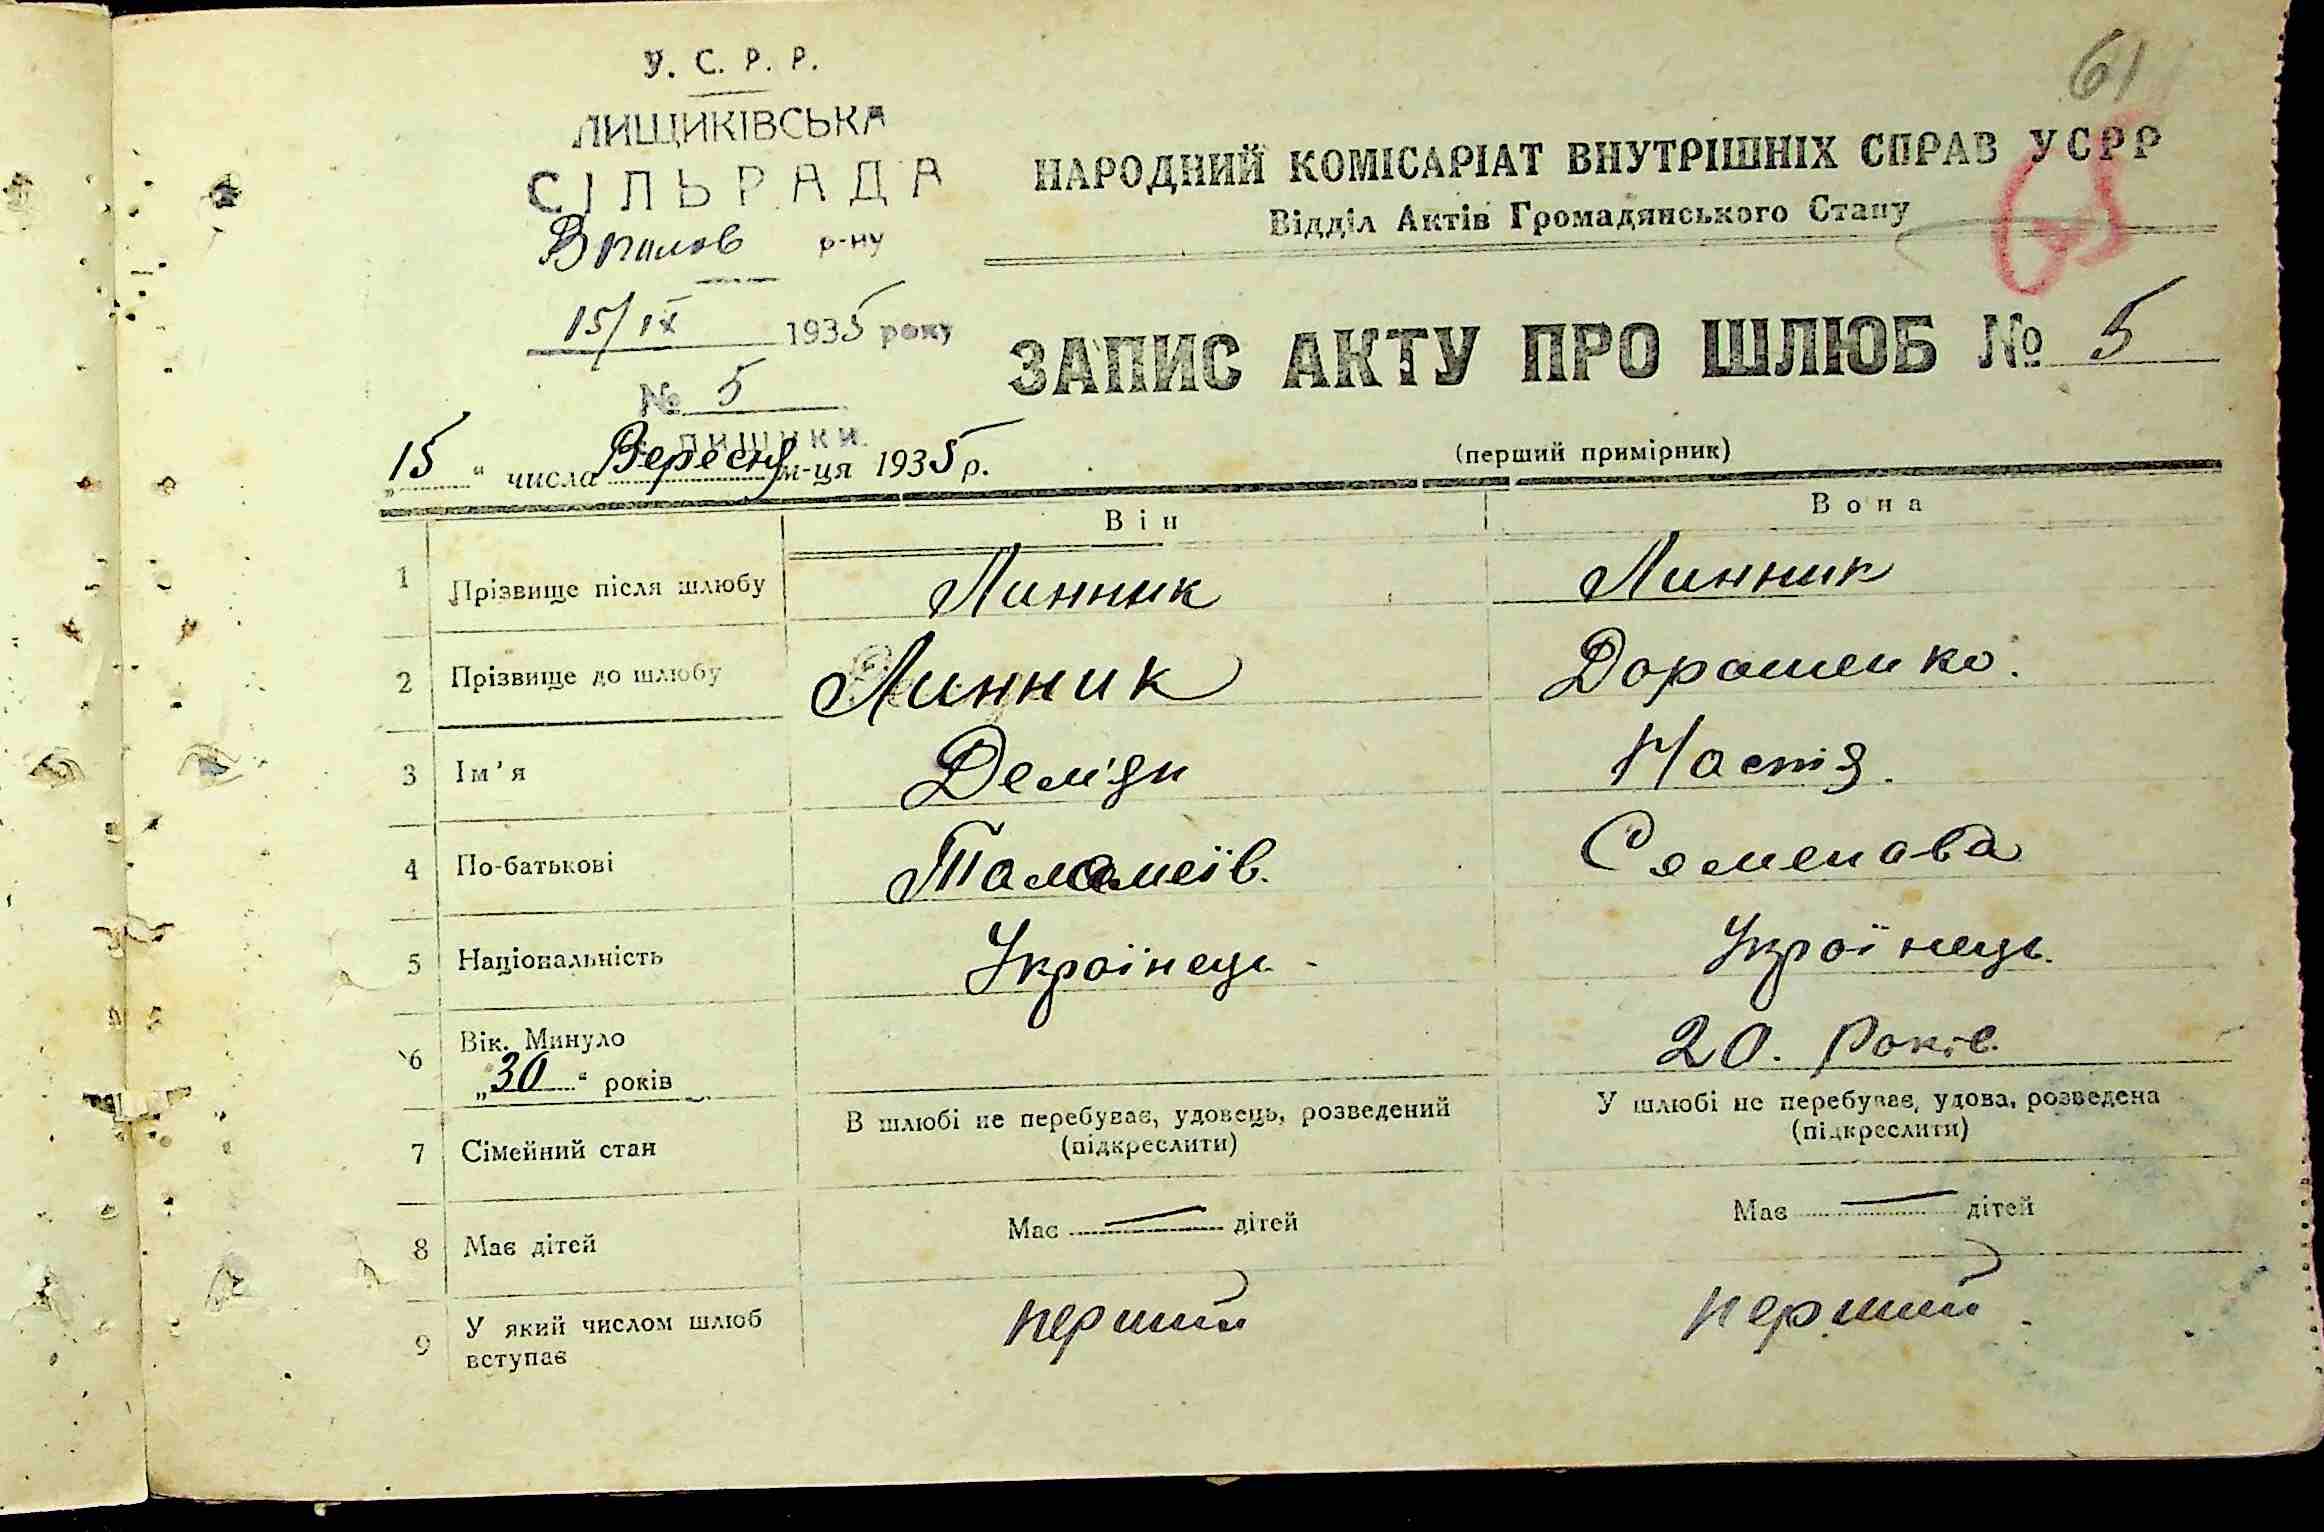 61
У. С. Р. Р.
ЛИЩИКІВСЬКА
СІЛЬРАДА
р-ну
15/IX 1935 року
№ 5
ЛИЩИКИ
65
НАРОДНИЙ КОМІСАРІАТ ВНУТРІШНІХ СПРАВ УСРР
Відділ Актів Громадянського Стану
ЗАПИС АКТУ ПРО ШЛЮБ № 5
„15" числа Вересня м-ця 1935 р.
(перший примірник)
Він Вона
1 Прізвище після шлюбу Линник Линник
2 Прізвище до шлюбу Линник Дорошенко.
3 Ім'я Дем'ян Настя.
4 По-батькові Семенова
5 Національність Українець Українець.
6 Вік. Минуло
„30" років 20. Років.
7 Сімейний стан В шлюбі не перебуває, удовець, розведений
(підкреслити) У шлюбі не перебуває, удова, розведена
(підкреслити)
8 Має дітей Має — дітей Має — дітей
9 У який числом шлюб
вступає перший перший